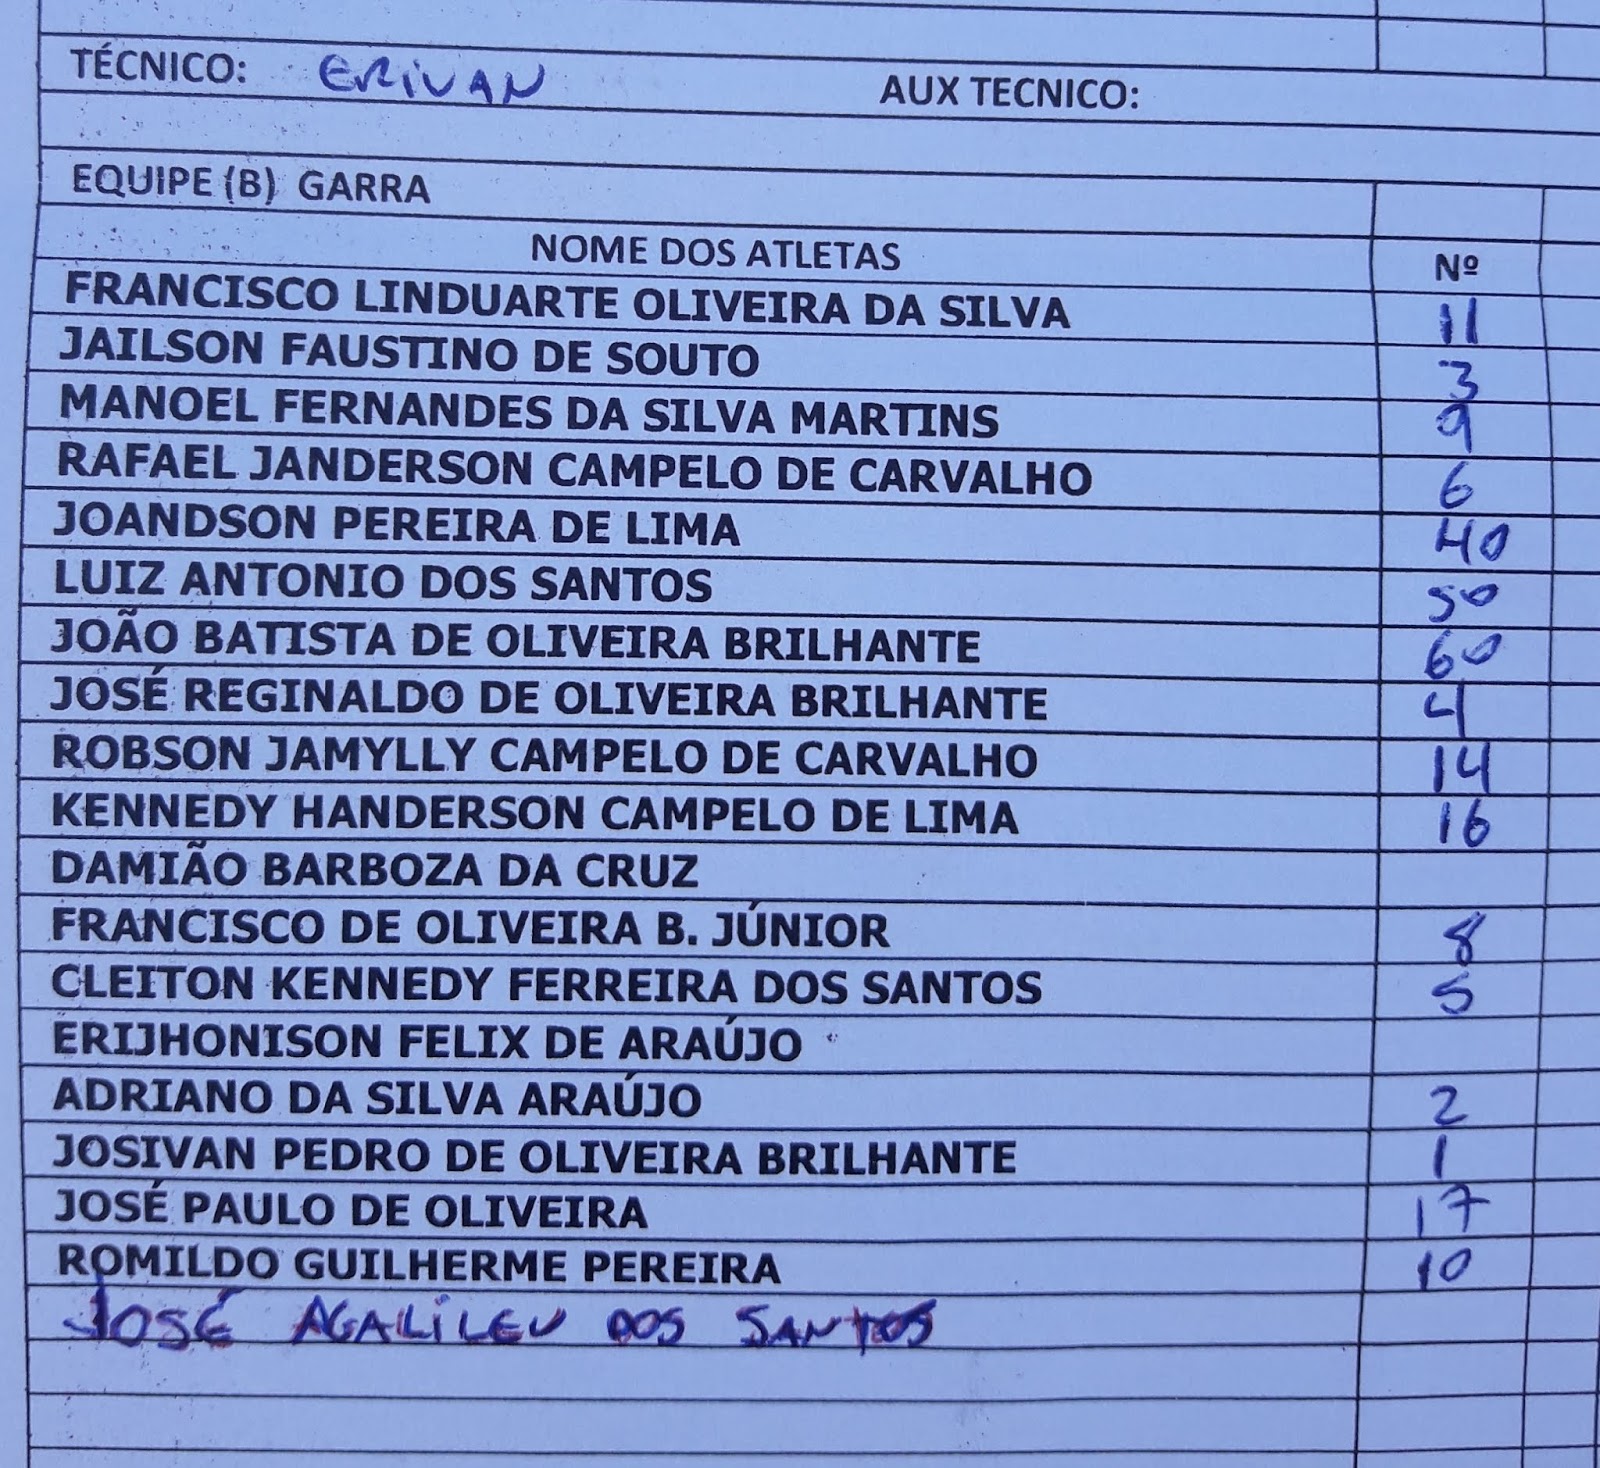 TÉCNICO: ERIVAN AUX TECNICO:
EQUIPE (B) GARRA
NOME DOS ATLETAS Nº
FRANCISCO LINDUARTE OLIVEIRA DA SILVA 11
JAILSON FAUSTINO DE SOUTO 3
MANOEL FERNANDES DA SILVA MARTINS 9
RAFAEL JANDERSON CAMPELO DE CARVALHO 6
JOANDSON PEREIRA DE LIMA 40
LUIZ ANTONIO DOS SANTOS 50
JOÃO BATISTA DE OLIVEIRA BRILHANTE 60
JOSÉ REGINALDO DE OLIVEIRA BRILHANTE 4
ROBSON JAMYLLY CAMPELO DE CARVALHO 14
KENNEDY HANDERSON CAMPELO DE LIMA 16
DAMIÃO BARBOZA DA CRUZ
FRANCISCO DE OLIVEIRA B. JÚNIOR 8
CLEITON KENNEDY FERREIRA DOS SANTOS 5
ERIJHONISON FELIX DE ARAÚJO
ADRIANO DA SILVA ARAÚJO 2
JOSIVAN PEDRO DE OLIVEIRA BRILHANTE 1
JOSÉ PAULO DE OLIVEIRA 17
ROMILDO GUILHERME PEREIRA 10
JOSÉ AGALILEU DOS SANTOS